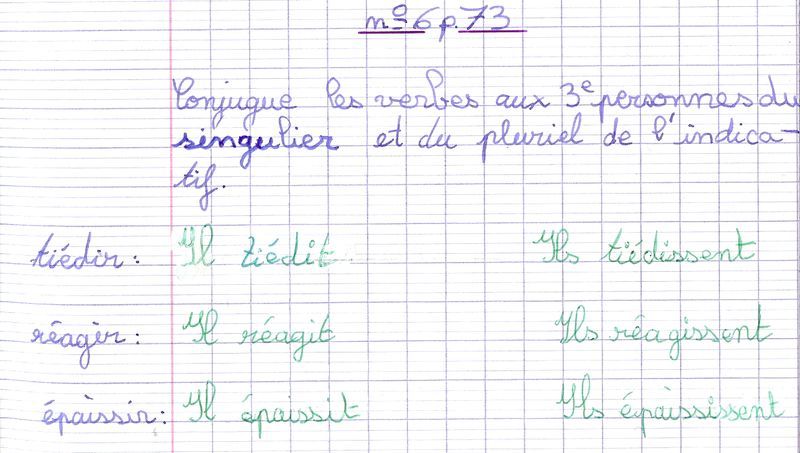 n° 6 p. 73
Conjugue les verbes aux 3e personnes du
singulier et du pluriel de l'indica-
tif.
tiédir : Il tiédit Ils tiédissent
réagir : Il réagit Ils réagissent
épaissir : Il épaissit Ils épaississent